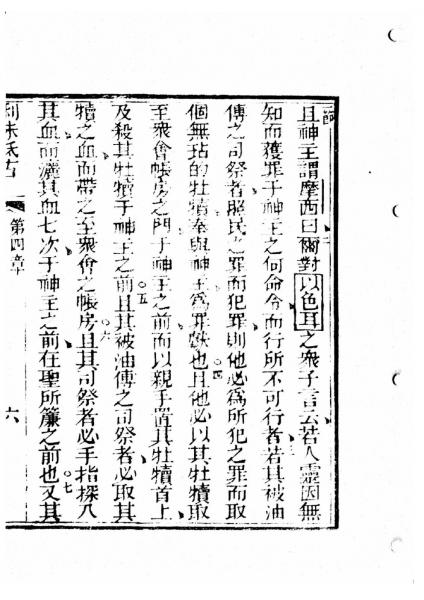 且神主謂摩西曰爾對以色耳之衆子言云若人靈因無
知而獲罪于神主之何命令而行所不可行者若其被油
傳之司祭者照民之罪而犯罪則他必爲所犯之罪而取
個無玷的牡犢奉與神主爲罪獻也且他必以其牡犢取
至衆會帳房之門于神主之前而以親手置其牡犢首上
及殺其牡犢于神主之前且其被油傳之司祭者必取其
犢之血而帶之至衆會之帳房且其司祭者必手指探入
其血而灑其血七次于神主之前在聖所簾之前也又其
利未氏古 第四章 六
二
三
四
五
六
七